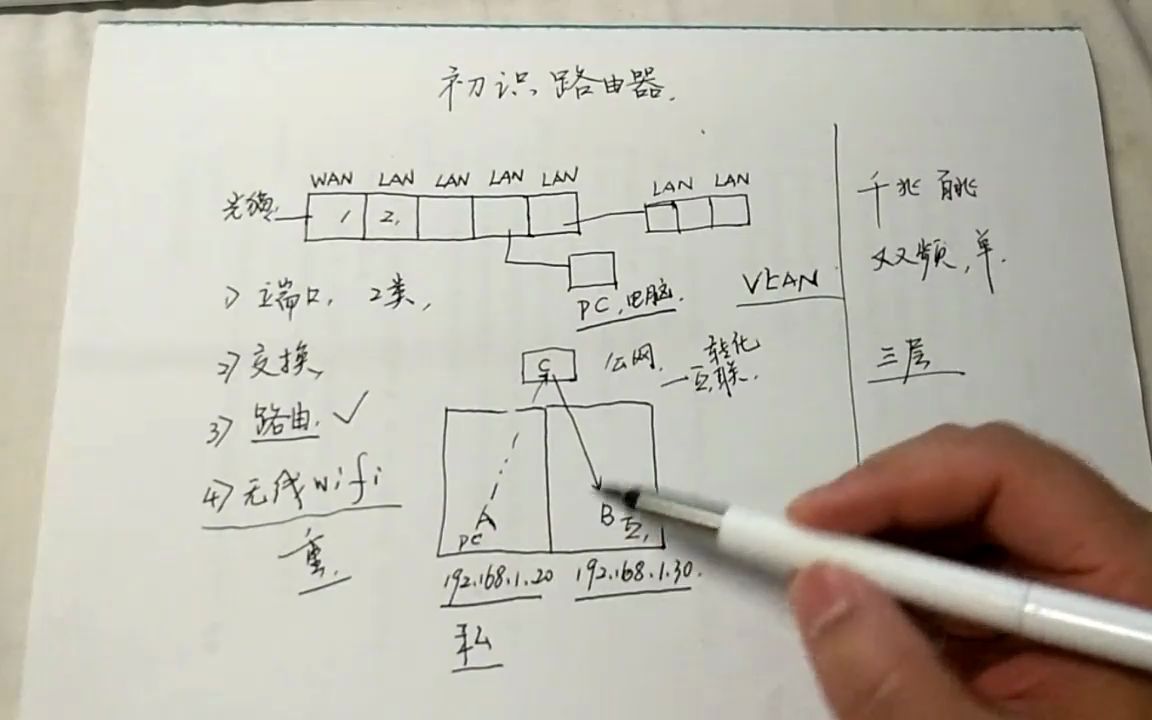 初识路由器.
WAN LAN LAN LAN LAN
LAN LAN
光猫
1 2.
PC,电脑.
VLAN
1) 端口, 2类,
2) 交换,
3) 路由. ✓
4) 无线wifi
重.
C 公网.
转化
一互联.
A
PC
B
192.168.1.20 192.168.1.30.
私
千兆 百兆
双频,单.
三层